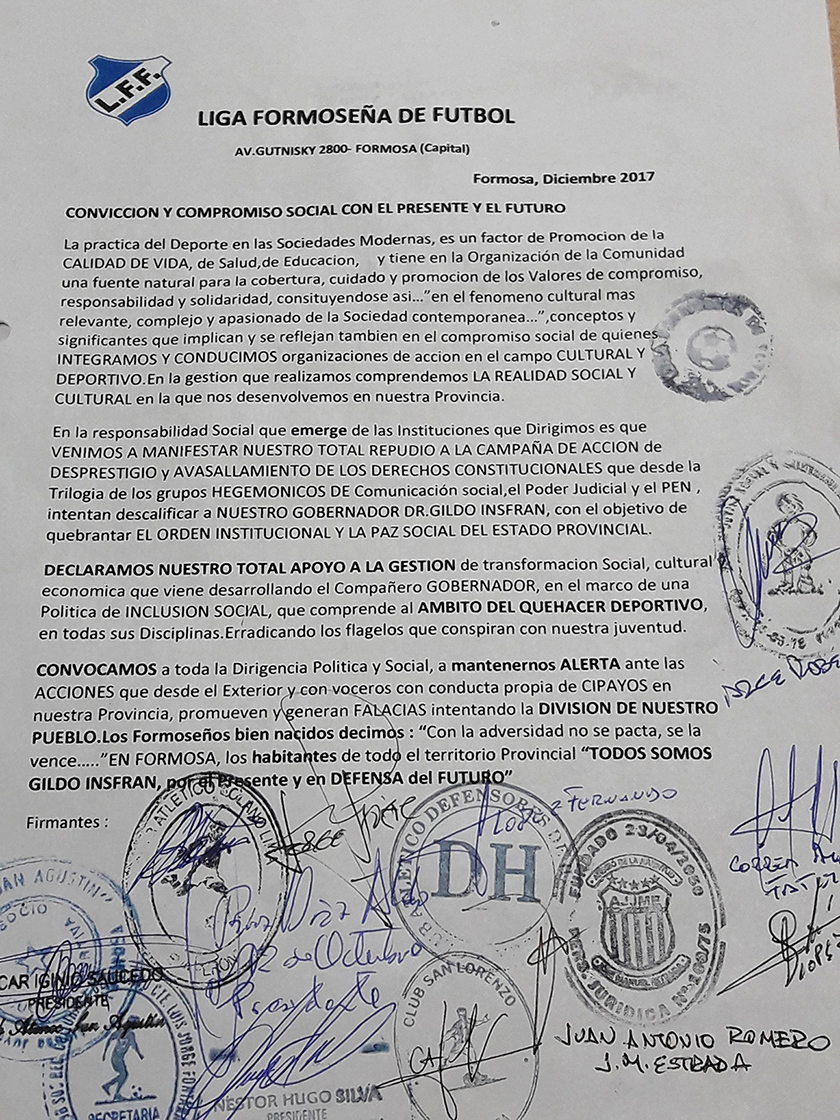 L.F.F.
LIGA FORMOSEÑA DE FUTBOL
AV.GUTNISKY 2800- FORMOSA (Capital)
Formosa, Diciembre 2017
CONVICCION Y COMPROMISO SOCIAL CON EL PRESENTE Y EL FUTURO
La practica del Deporte en las Sociedades Modernas, es un factor de Promocion de la
CALIDAD DE VIDA, de Salud,de Educacion, y tiene en la Organización de la Comunidad
una fuente natural para la cobertura, cuidado y promocion de los Valores de compromiso,
responsabilidad y solidaridad, consituyendose asi..."en el fenomeno cultural mas
relevante, complejo y apasionado de la Sociedad contemporanea...",conceptos y
significantes que implican y se reflejan tambien en el compromiso social de quienes
INTEGRAMOS Y CONDUCIMOS organizaciones de accion en el campo CULTURAL Y
DEPORTIVO.En la gestion que realizamos comprendemos LA REALIDAD SOCIAL Y
CULTURAL en la que nos desenvolvemos en nuestra Provincia.
En la responsabilidad Social que emerge de las Instituciones que Dirigimos es que
VENIMOS A MANIFESTAR NUESTRO TOTAL REPUDIO A LA CAMPAÑA DE ACCION de
DESPRESTIGIO y AVASALLAMIENTO DE LOS DERECHOS CONSTITUCIONALES que desde la
Trilogia de los grupos HEGEMONICOS DE Comunicación social,el Poder Judicial y el PEN ,
intentan descalificar a NUESTRO GOBERNADOR DR.GILDO INSFRAN, con el objetivo de
quebrantar EL ORDEN INSTITUCIONAL Y LA PAZ SOCIAL DEL ESTADO PROVINCIAL.
DECLARAMOS NUESTRO TOTAL APOYO A LA GESTION de transformacion Social, cultural
economica que viene desarrollando el Compañero GOBERNADOR, en el marco de una
Politica de INCLUSION SOCIAL, que comprende al AMBITO DEL QUEHACER DEPORTIVO,
en todas sus Disciplinas.Erradicando los flagelos que conspiran con nuestra juventud.
CONVOCAMOS a toda la Dirigencia Politica y Social, a mantenernos ALERTA ante las
ACCIONES que desde el Exterior y con voceros con conducta propia de CIPAYOS en
nuestra Provincia, promueven y generan FALACIAS intentando la DIVISION DE NUESTRO
PUEBLO.Los Formoseños bien nacidos decimos : "Con la adversidad no se pacta, se la
vence....."EN FORMOSA, los habitantes de todo el territorio Provincial "TODOS SOMOS
GILDO INSFRAN, por el Presente y en DEFENSA del FUTURO"
Firmantes :
FERNANDO
ATLETICO DEFENSORES
DH
FUNDADO 23/04/2050
A.J.J.M.E.
PERS. JURIDICA Nº 200/75
SAN AGUSTIN
SOCIO
Diaz Aldo
12 de Octubre
Presidente
IGINIO SAUCEDO
PRESIDENTE
San Agustin
CLUB SAN LORENZO
LOPEZ
JUAN ANTONIO ROMERO
J.M. ESTRADA
LUIS JORGE
SECRETARIA
NESTOR HUGO SILVA
PRESIDENTE